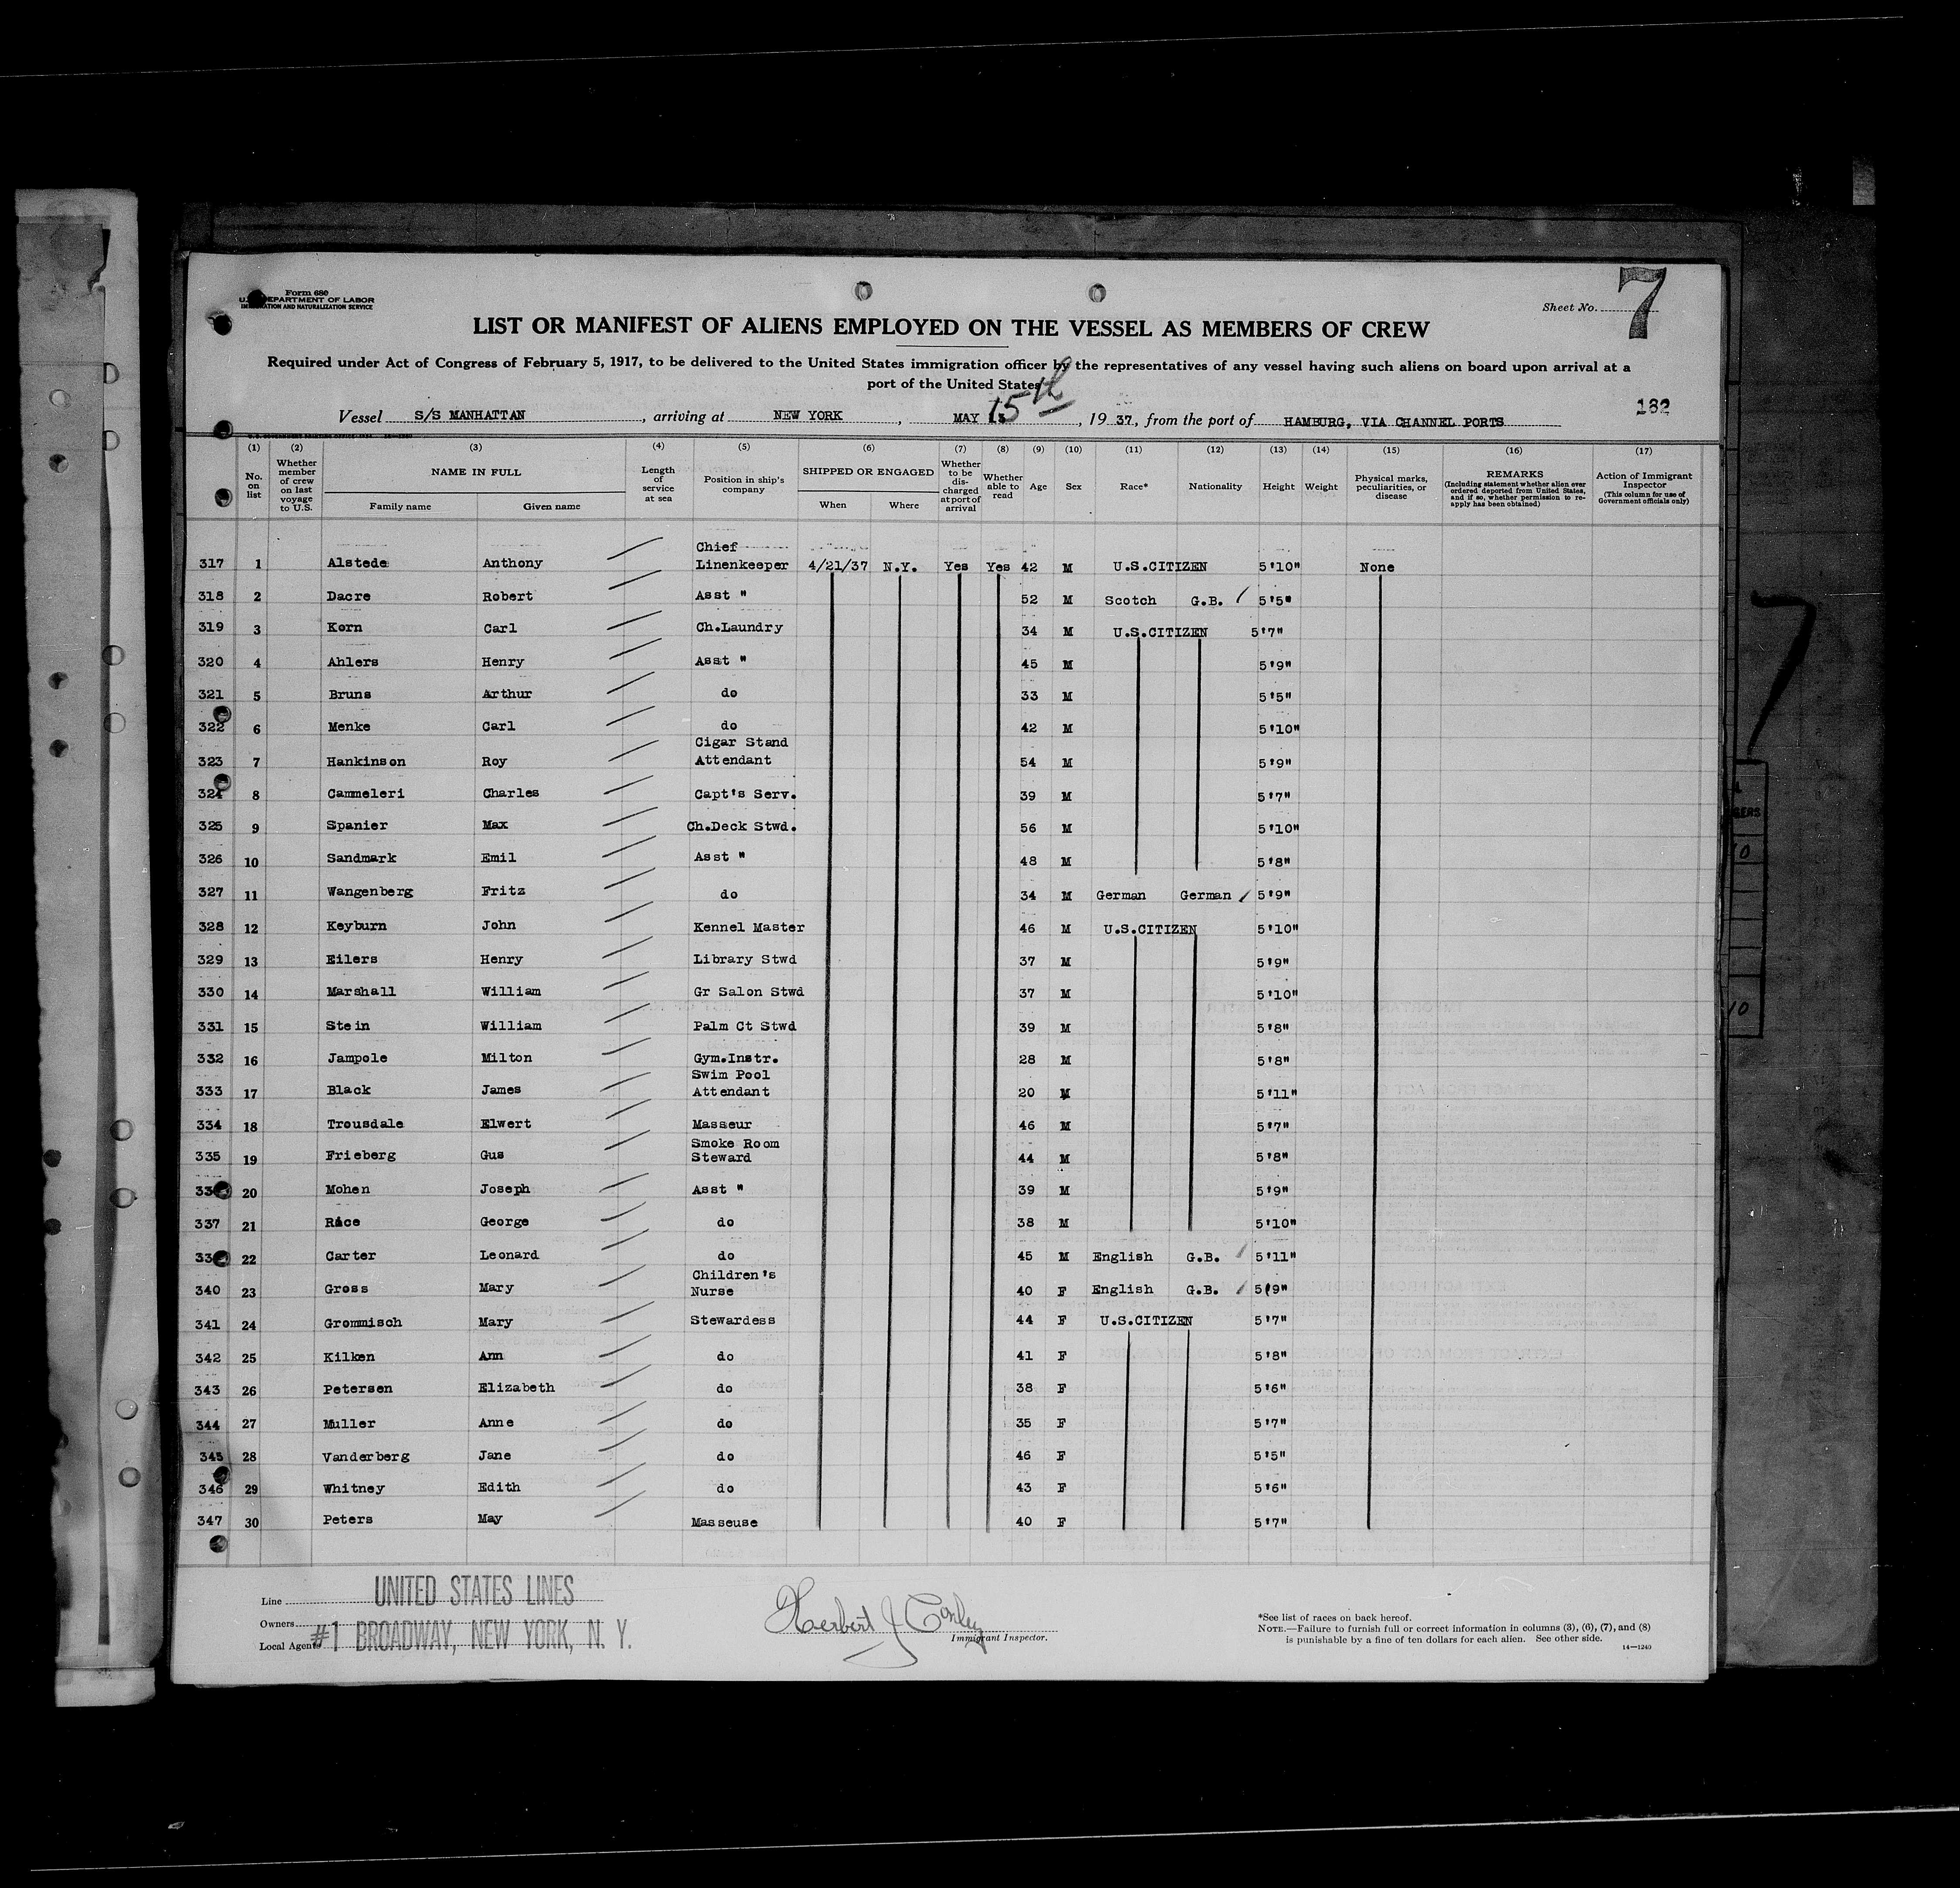 Form 680
U.S. DEPARTMENT OF LABOR
IMMIGRATION AND NATURALIZATION SERVICE
Sheet No. 7
LIST OR MANIFEST OF ALIENS EMPLOYED ON THE VESSEL AS MEMBERS OF CREW
Required under Act of Congress of February 5, 1917, to be delivered to the United States immigration officer by the representatives of any vessel having such aliens on board upon arrival at a
port of the United States
182
Vessel S/S MANHATTAN, arriving at NEW YORK, MAY 15th, 19 37, from the port of HAMBURG, VIA CHANNEL PORTS
(1) No. on list
(2) Whether member of crew on last voyage to U.S.
(3) NAME IN FULL Family name Given name
(4) Length of service at sea
(5) Position in ship's company
(6) SHIPPED OR ENGAGED When Where
(7) Whether to be discharged at port of arrival
(8) Whether able to read
(9) Age
(10) Sex
(11) Race*
(12) Nationality
(13) Height
(14) Weight
(15) Physical marks, peculiarities, or disease
(16) REMARKS (Including statement whether alien ever ordered deported from United States, and if so, whether permission to reapply has been obtained)
(17) Action of Immigrant Inspector (This column for use of Government officials only)
317 1 Alstede Anthony Chief Linenkeeper 4/21/37 N.Y. Yes Yes 42 M U.S.CITIZEN 5'10" None
318 2 Dacre Robert Asst " 52 M Scotch G.B. 5'5"
319 3 Korn Carl Ch.Laundry 34 M U.S.CITIZEN 5'7"
320 4 Ahlers Henry Asst " 45 M 5'9"
321 5 Bruns Arthur do 33 M 5'5"
322 6 Menke Carl do 42 M 5'10"
323 7 Hankinson Roy Cigar Stand Attendant 54 M 5'9"
324 8 Cammeleri Charles Capt's Serv. 39 M 5'7"
325 9 Spanier Max Ch.Deck Stwd. 56 M 5'10"
326 10 Sandmark Emil Asst " 48 M 5'8"
327 11 Wangenberg Fritz do 34 M German German 5'9"
328 12 Keyburn John Kennel Master 46 M U.S.CITIZEN 5'10"
329 13 Eilers Henry Library Stwd 37 M 5'9"
330 14 Marshall William Gr Salon Stwd 37 M 5'10"
331 15 Stein William Palm Ct Stwd 39 M 5'8"
332 16 Jampole Milton Gym.Instr. 28 M 5'8"
333 17 Black James Swim Pool Attendant 20 M 5'11"
334 18 Trousdale Elwert Masseur 46 M 5'7"
335 19 Frieberg Gus Smoke Room Steward 44 M 5'8"
20 Mohen Joseph Asst " 39 M 5'9"
337 21 Rice George do 38 M 5'10"
22 Carter Leonard do 45 M English G.B. 5'11"
340 23 Gross Mary Children's Nurse 40 F English G.B. 5'9"
341 24 Grommisch Mary Stewardess 44 F U.S.CITIZEN 5'7"
342 25 Kilken Ann do 41 F 5'8"
343 26 Petersen Elizabeth do 38 F 5'6"
344 27 Muller Anne do 35 F 5'7"
345 28 Vanderberg Jane do 46 F 5'5"
346 29 Whitney Edith do 43 F 5'6"
347 30 Peters May Masseuse 40 F 5'7"
Line UNITED STATES LINES
Owners
Local Agents #1 BROADWAY, NEW YORK, N. Y.
Herbert J Conley
Immigrant Inspector.
*See list of races on back hereof.
NOTE.—Failure to furnish full or correct information in columns (3), (6), (7), and (8)
is punishable by a fine of ten dollars for each alien. See other side.
14—1240
7